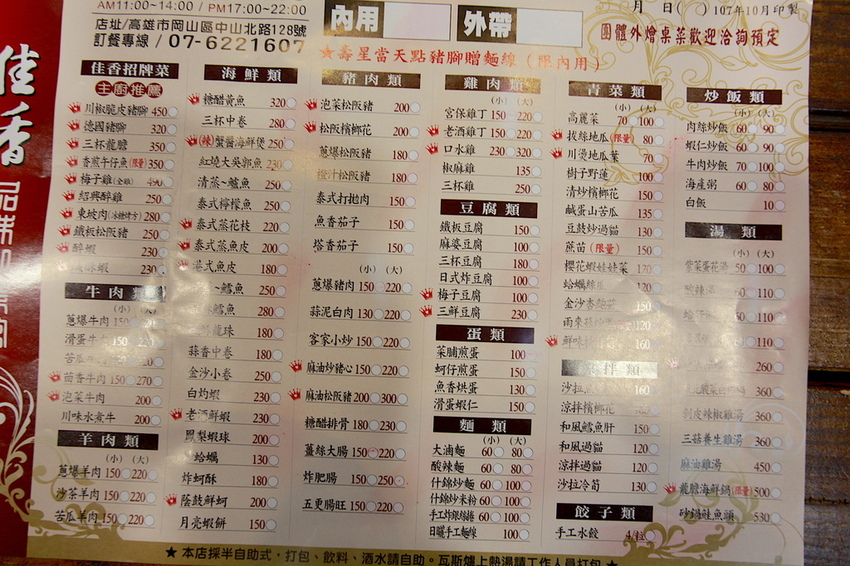 AM11:00~14:00 / PM17:00~22:00
店址/高雄市岡山區中山北路128號
訂餐專線/07-6221607
內用
外帶
月 日( )107年10月印製
團體外燴桌菜歡迎洽詢預定
★壽星當天點豬腳贈麵線(限內用)
佳香
佳香招牌菜
主廚推薦
川椒脆皮豬腳 450
德國豬腳 320
三杯龍膽 350
香煎午仔魚(限量) 350
梅子雞(全雞) 490
紹興醉雞 250
東坡肉(冰糖烤方) 280
鐵板松阪豬 250
醉蝦 230
230
牛肉類
(小) (大)
蔥爆牛肉 150 220
滑蛋牛肉 150
苦瓜牛肉
茴香牛肉 150 270
泡菜牛肉 200
川味水煮牛 200
羊肉類
(小) (大)
蔥爆羊肉 150 220
沙茶羊肉 150 220
苦瓜羊肉 150 220
海鮮類
糖醋黃魚 320
三杯中卷 280
(辣)蟹醬海鮮煲 250
紅燒大吳郭魚 230
清蒸~鱸魚 250
泰式檸檬魚 250
泰式蒸花枝 220
泰式蒸魚皮 200
港式魚皮 180
~鱸魚 250
龍珠 180
蒜香中卷 180
金沙小卷 250
白灼蝦 230
老酒鮮蝦 230
鳳梨蝦球 200
蛤蠣 130
炸蚵酥 180
蔭鼓鮮蚵 200
月亮蝦餅 150
豬肉類
泡菜松阪豬 200
松阪檳榔花 200
蔥爆松阪豬 180
橙汁松阪豬 180
泰式打拋肉 150
魚香茄子 150
塔香茄子 150
(小) (大)
蔥爆豬肉 150 220
蒜泥白肉 130 220
客家小炒 150 220
麻油炒豬心 150 220
麻油松阪豬 200 300
糖醋排骨 180 230
薑絲大腸 150 220
炸肥腸 150 220
五更腸旺 150 220
雞肉類
(小) (大)
宮保雞丁 150 220
老酒雞丁 150 220
口水雞 230 320
椒麻雞 135
三杯雞 250
豆腐類
鐵板豆腐 150
麻婆豆腐 100
三杯豆腐 180
日式炸豆腐 100
梅子豆腐 100
三鮮豆腐 230
蛋類
菜脯煎蛋 100
蚵仔煎蛋 150
魚香烘蛋 130
滑蛋蝦仁 150
麵類
(小) (大)
大滷麵 60 80
酸辣麵 60 80
什錦炒麵 60 100
什錦炒米粉 60 100
60 100
日曬手工麵線 100
青菜類
(小) (大)
高麗菜 70 100
拔絲地瓜(限量) 80
川燙地瓜葉 70
樹子野蓮 100
清炒檳榔花 150
鹹蛋山苦瓜 135
豆鼓炒過貓 130
蔗苗(限量) 150
櫻花蝦娃娃菜 170
150
150
160
沙拉
160
涼拌檳榔花 160
和風鱈魚肝 150
和風過貓 130
涼拌過貓 130
沙拉冷筍 130
餃子類
手工水餃 4/粒
炒飯類
(小) (大)
肉絲炒飯 60 90
蝦仁炒飯 60 90
牛肉炒飯 70 100
海產粥 60 80
白飯 10
湯類
(小) (大)
紫菜蛋花湯 50 100
60 110
60 110
110
260
360
剝皮辣椒雞湯 360
三菇養生雞湯 360
麻油雞湯 450
龍膽海鮮鍋(限量) 500
砂鍋鮭魚頭 530
★本店採半自助式,打包、飲料、酒水請自助。瓦斯爐上熱湯請工作人員打包★